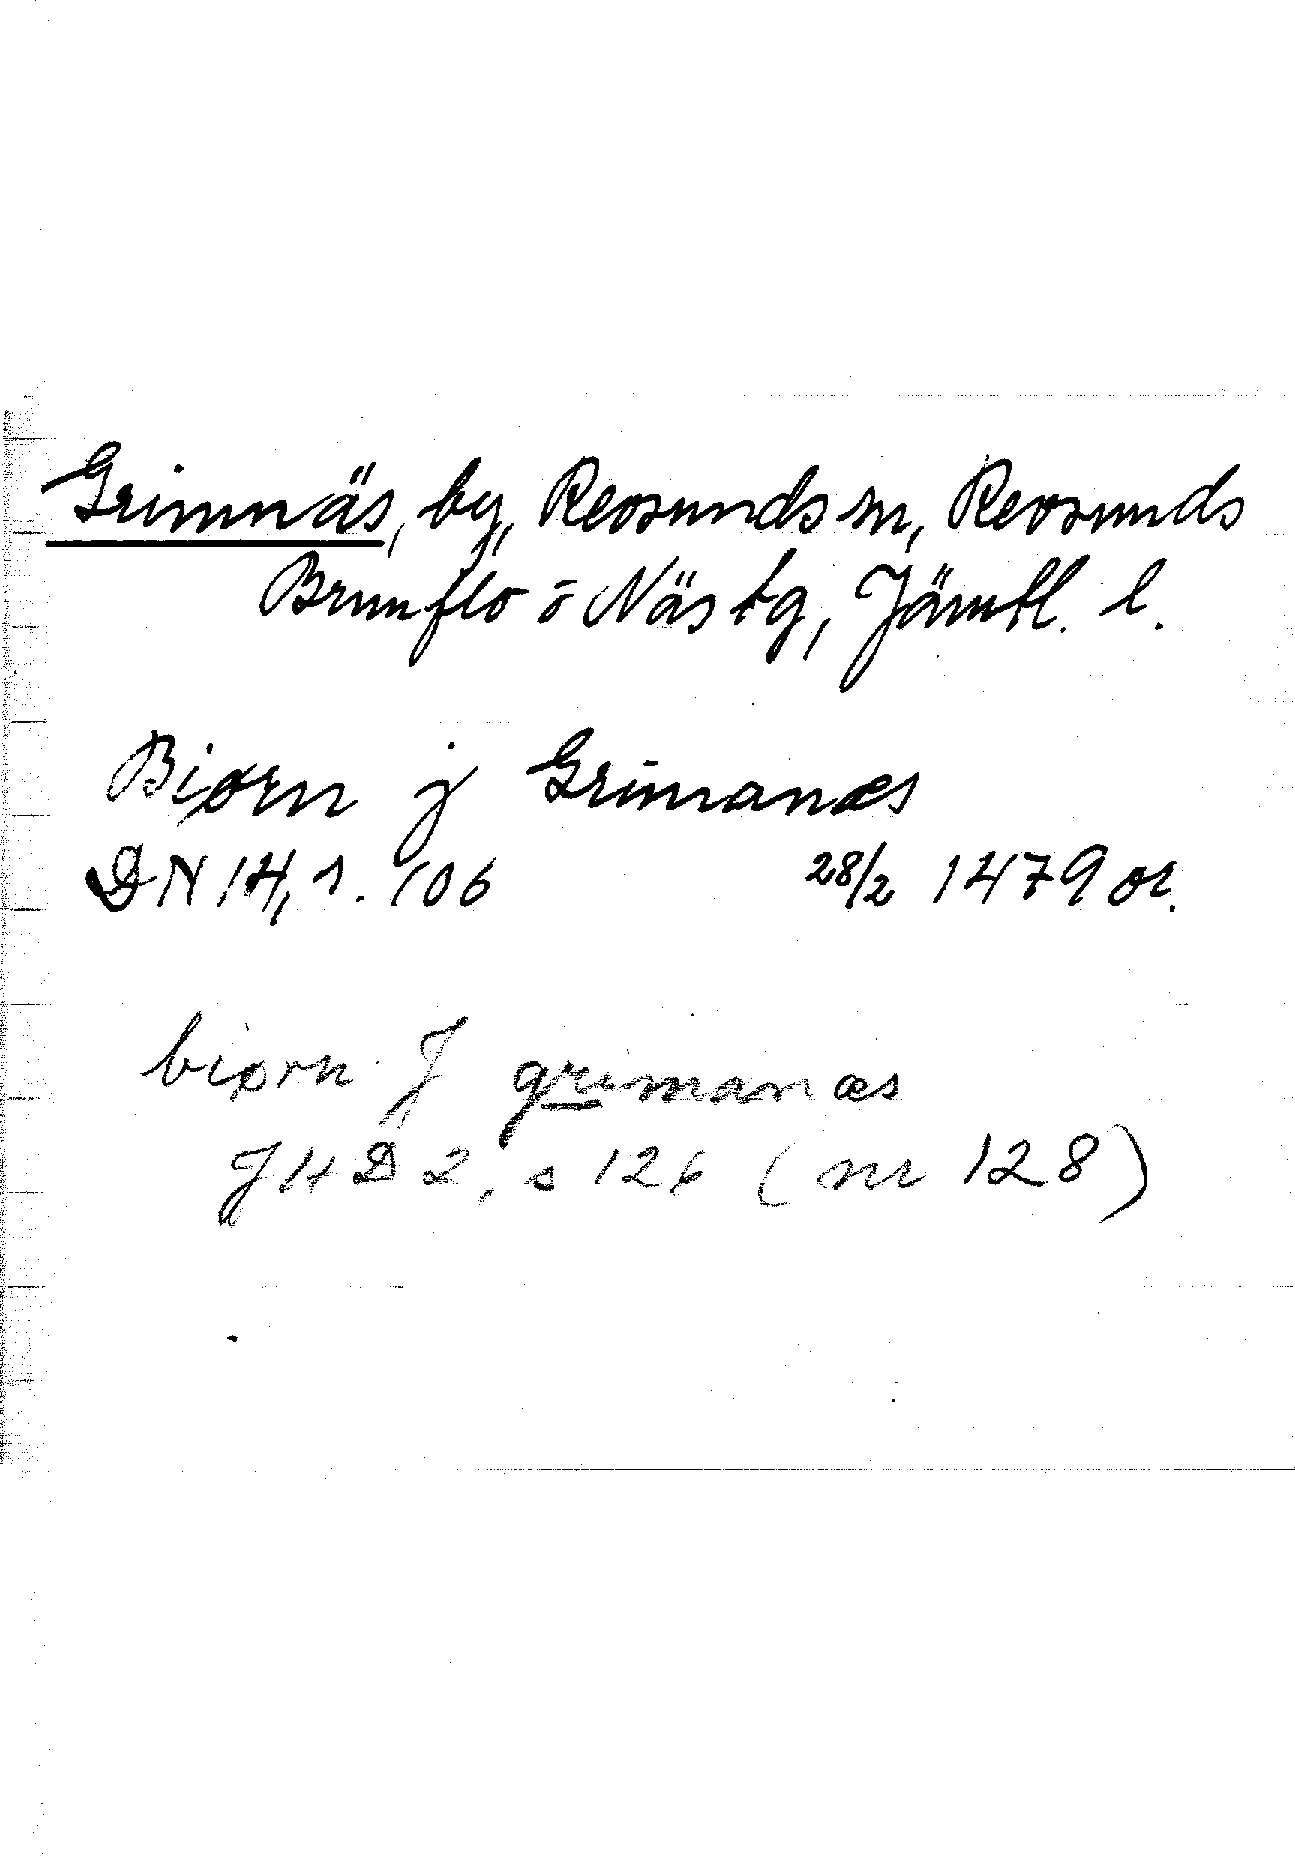 Grimnäs, by, Revsunds sn, Revsunds
Brunflo o Näs tg, Jämtl. l.
Biørn j Grimanæs
DN 14, s. 106 28/2 1479 or.
biørn J grimanæs
JHD 2, s 126 (nr 128)